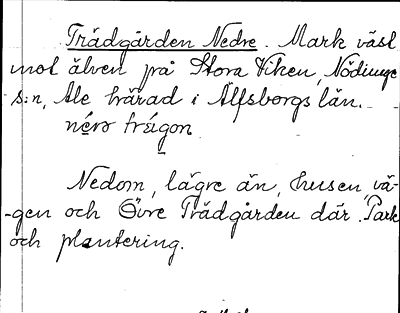 Trädgården Nedre. Mark väst
mot älven på Stora Viken, Nödinge
s:n, Ale härad i Älfsborgs län.
Nedom, lägre än, husen, vä-
gen och Övre Trädgården där. Park
och plantering.